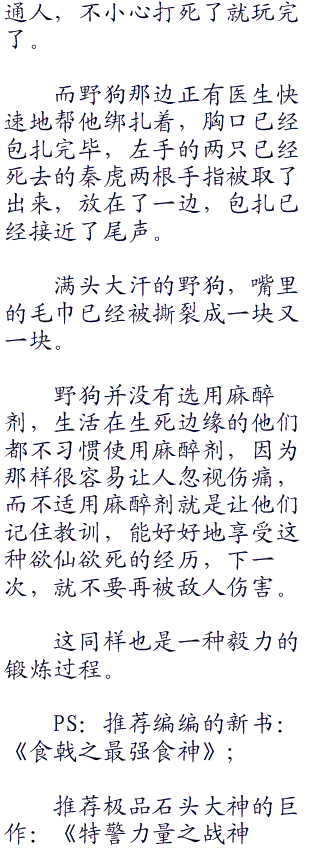 通人，不小心打死了就玩完
了。
而野狗那边正有医生快
速地帮他绑扎着，胸口已经
包扎完毕，左手的两只已经
死去的秦虎两根手指被取了
出来，放在了一边，包扎已
经接近了尾声。
满头大汗的野狗，嘴里
的毛巾已经被撕裂成一块又
一块。
野狗并没有选用麻醉
剂，生活在生死边缘的他们
都不习惯使用麻醉剂，因为
那样很容易让人忽视伤痛，
而不适用麻醉剂就是让他们
记住教训，能好好地享受这
种欲仙欲死的经历，下一
次，就不要再被敌人伤害。
这同样也是一种毅力的
锻炼过程。
PS：推荐编编的新书：
《食戟之最强食神》；
推荐极品石头大神的巨
作：《特警力量之战神